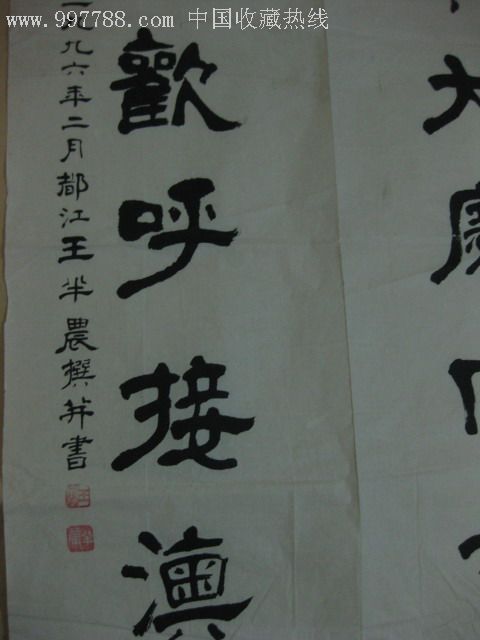 www.997788.com 中国收藏热线
大
歡呼接澳
一九九六年二月都江王半農撰并書